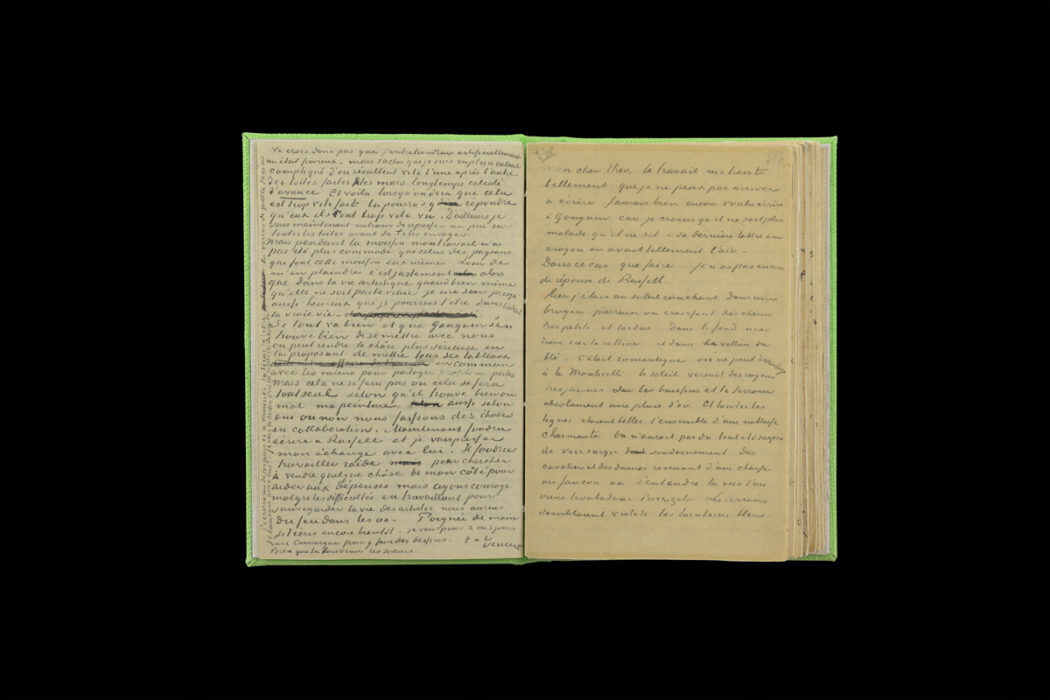 Ne crois donc pas que j'entretiendrais artificiellement
un état fievreux – mais sache que je suis en plein calcul
compliqué d'où resultent vite l'une après l'autre
des toiles faites vites mais longtemps calculé
d'avance. Et voila lorsqu'on dira que cela
est trop vite fait tu pourra's y repondre
qu'eux ils ont trop vite vu. D'ailleurs je
suis maintenant en train de repasser un peu sur
toutes les toiles avant de te les envoyer.
Mais pendant la moisson mon travail n'a
pas été plus commode que celui des paysans
qui font cette moisson eux mêmes. Loin de
m'en plaindre c'est justement alors
que dans la vie artistique quand bien même
qu'elle ne soit pas la vraie je me sens presque
aussi heureux que je pourrais l'être dans l'ideal
la vraie vie.
Si tout va bien et que Gauguin s'en
trouve bien de se mettre avec nous
on peut rendre la chôse plus serieuse en
lui proposant de mettre tous ses tableaux
en commun
avec les miens pour partager profits ou pertes
Mais cela ne se fera pas ou cela se fera
tout seul selon qu'il trouve bien ou
mal ma peinture aussi selon
oui ou non nous fassions des choses
en collaboration. Maintenant faudra
écrire à Russell et je vais presser
mon échange avec lui. Il faudra
travailler raide pour chercher
à vendre quelque chôse de mon côté pour
aider aux dépenses mais ayons courage
malgré les difficultés en travaillant pour
sauvegarder la vie des artistes nous aurons
du feu dans les os. Poignée de main
je t'écris encore bientôt. je vais pour 2 ou 3 jours
en Camargue pour y faire des dessins. t. à t.
Vincent
Bien que tu fais venir les soeurs.
Mon cher Theo, le travail me tient
tellement que je ne peux pas arriver
à écrire. J'aurais bien encore voulu écrire
à Gauguin car je crains qu'il ne soit plus
malade qu'il ne dit – sa dernière lettre au
crayon en avait tellement l'air.
Dans ce cas que faire. je n'ai pas encore
de réponse de Russell.
Hier j'étais au soleil couchant dans une
bruyère pierreuse où croissent des chênes
très petits et tordus dans le fond une
ruine sur la colline et dans le vallon du
blé. C'était romantique on ne peut davantage
à la Monticelli le soleil versait des rayons
très jaunes sur les buissons et le terrain
absolument une pluie d'or. Et toutes les
lignes étaient belles l'ensemble d'une noblesse
charmante. On n'aurait pas du tout été surpris
de voir surgir soudainement des
cavaliers et des dames revenant d'une chasse
au faucon ou d'entendre la voix d'un
vieux troubadour provençal. Les terrains
semblaient violets les lointains bleus.